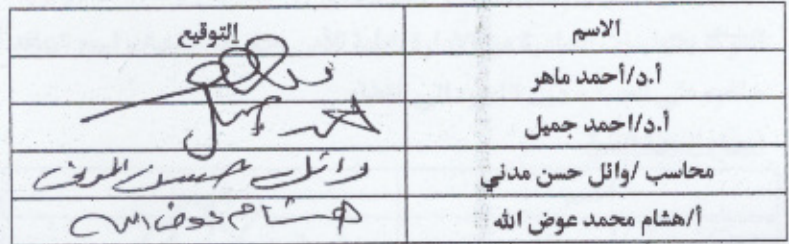 الاسم التوقيع
أ.د/أحمد ماهر
أ.د/احمد جميل
محاسب /وائل حسن مدني وائل حسن
أ/هشام محمد عوض الله هشام عوض الله